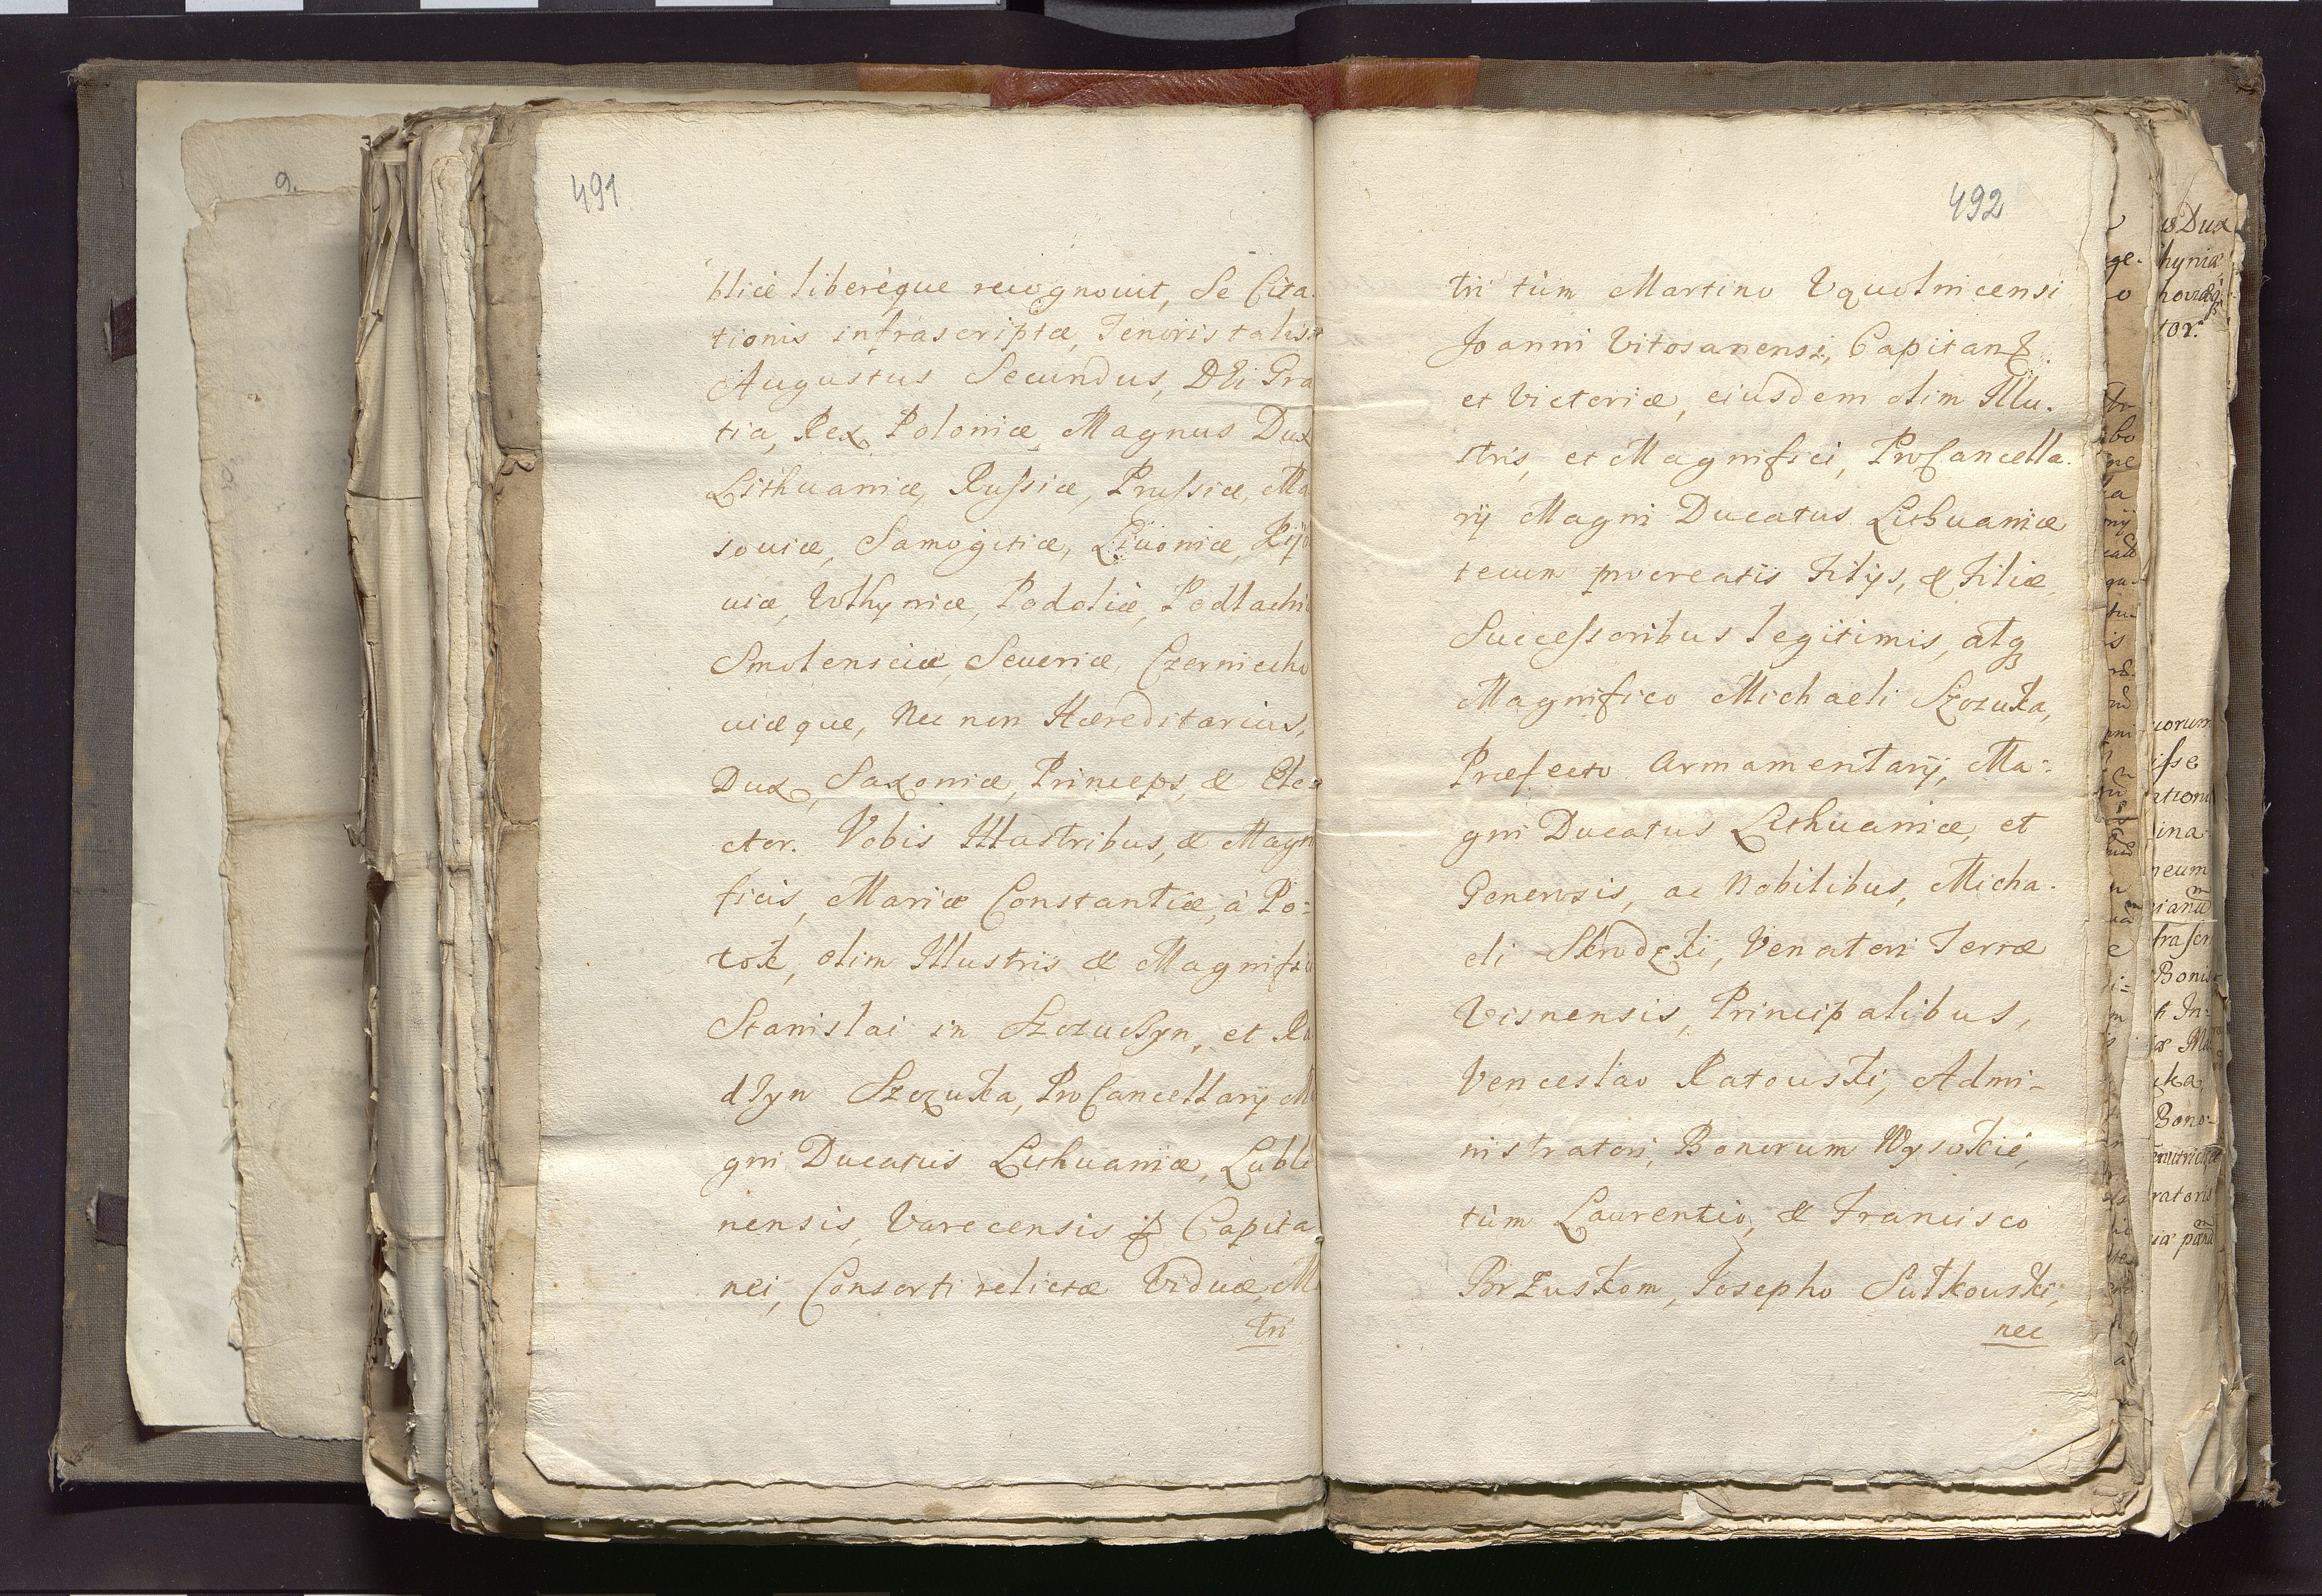 491
blicè liberèque recognouit, Se Cita-
tionis infrascriptæ, Tenoris talis:
Augustus Secundus, DEi Gra
tia, Rex Poloniæ, Magnus Dux
Lithuaniæ, Russiæ, Prussiæ, Ma
souiæ, Samogitiæ, Liuoniæ, Kijo
uiæ, Volhyniæ, Podoliæ, Podlachi
Smolensciæ, Seueriæ, Czerniecho
uiæque, Nec non Hæreditarius,
Dux, Saxoniæ, Princeps, & Ele=
ctor. Vobis Illustribus, & Magn
ficis, Mariæ Constantiæ, à Po=
tok, olim Illustris & Magnifi
Stanislai in Szczuczyn, et Ra
dzyn Szczuka, ProCancellarij M
gni Ducatus Lithuaniæ, Lubli
nensis, Varecensis Capita
nei, Consorti relictæ Viduæ, M
tri
492
tri tùm Martino Vquolnicensi
Joanni Vitosanensi, Capitan
et Victoriæ, eiusdem olim Illu-
stris, et Magnifici, ProCancella-
rij Magni Ducatus Lithuaniæ
tecum procreatis Filijs, & Filiæ,
Successoribus legitimis, atq
Magnifico Michaeli Szczuka,
Præfecto Armamentarij, Ma-
gni Ducatus Lithuaniæ, et
Generosis, ac Nobilibus, Micha-
eli Skrodzki, Venatori Terræ
Visnensis, Principalibus,
Venceslao Ratouski, Admi-
nistratori, Bonorum Wysokié,
tùm Laurentio, & Francisco
Brzuskom, Josepho Sutkouski,
nec